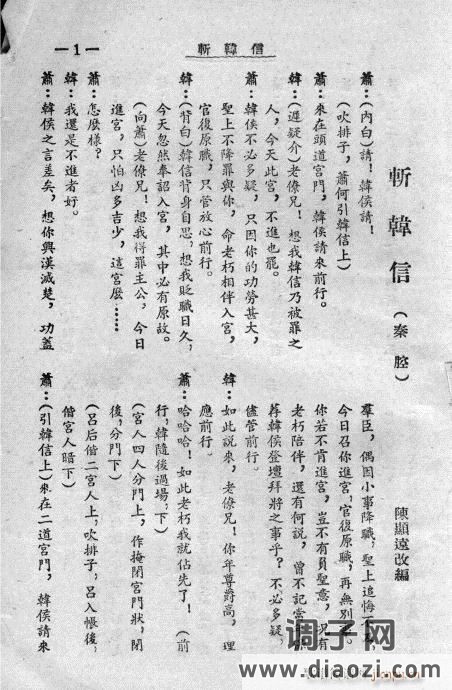 —1—
斬韓信
斬韓信（秦腔）
陳顯遠改編
蕭：（內白）請！韓侯請！
（吹排子，蕭何引韓信上）
蕭：來在頭道宮門，韓侯請來前行。
韓：（遲疑介）老僚兄！想我韓信乃被罪之
人，今天此宮，不進也罷。
蕭：韓侯不必多疑，只因你的功勞甚大，
聖上不降罪與你，命老朽相伴入宮，
官復原職，只管放心前行。
韓：（背白）韓信背身自思，想我貶職日久，
今天忽然奉詔入宮，其中必有原故。
（向蕭）老僚兄！想我得罪主公，今日
進宮，只怕凶多吉少，這宮麽……
蕭：怎麼樣？
韓：我還是不進者好。
蕭：韓侯之言差矣，想你興漢滅楚，功蓋
羣臣，偶因小事降職，聖上追悔
今日召你進宮，官復原職，再無別
你若不肯進宮，豈不有負聖意，只有
老朽陪伴，還有何說，曾不記當
荐韓侯登壇拜將之事乎？不必多疑，
儘管前行。
韓：如此說來，老僚兄！你年尊爵高，理
應前行。
蕭：哈哈哈！如此老朽我就佔先了！（前
行，韓隨後過場，下）
（宮人四人分門上，作掩閉宮門狀，閉
後，分門下）
（呂后偕二宮人上，吹排子，呂入帳後，
偕宮人暗下）
蕭：（引韓信上）來在二道宮門，韓侯請來
调子网
www.diaozi.com